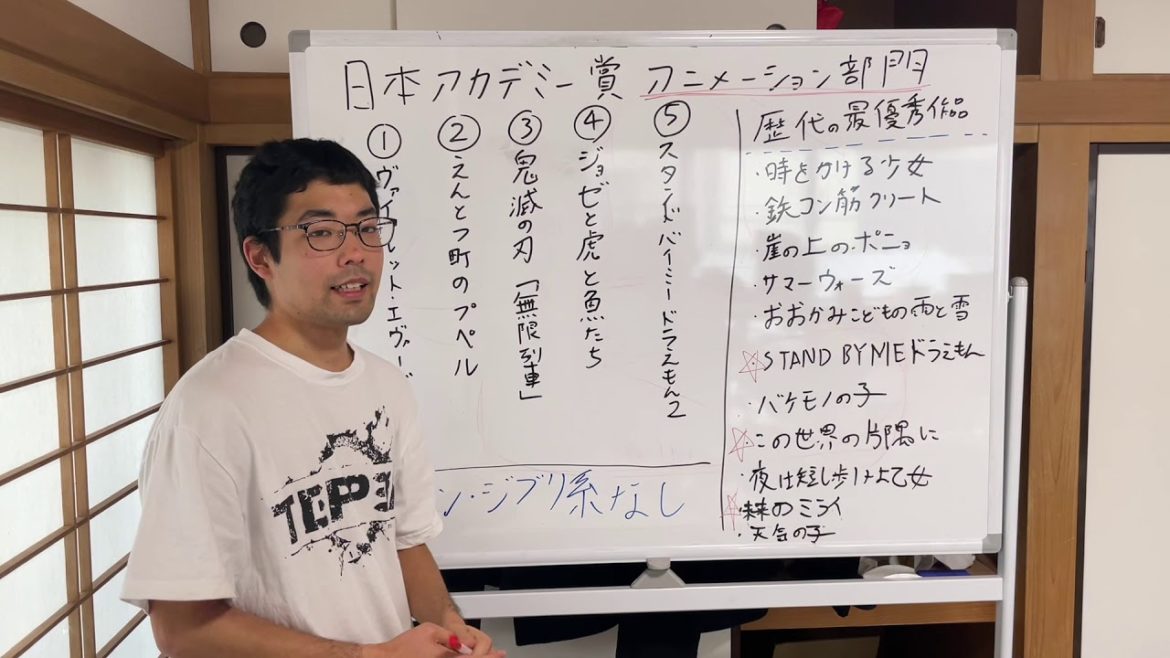 日本アカデミー賞 アニメーション部門
① ヴァイレット・エヴァー
② えんとつ町のプペル
③ 鬼滅の刃「無限列車」
④ ジョゼと虎と魚たち
⑤ スタンドバイミードラえもん2
ン・ジブリ系なし
歴代の最優秀作品
・時をかける少女
・鉄コン筋クリート
・崖の上のポニョ
・サマーウォーズ
・おおかみこどもの雨と雪
☆STAND BY MEドラえもん
・バケモノの子
☆この世界の片隅に
・夜は短し歩けよ乙女
☆・未来のミライ
・天気の子